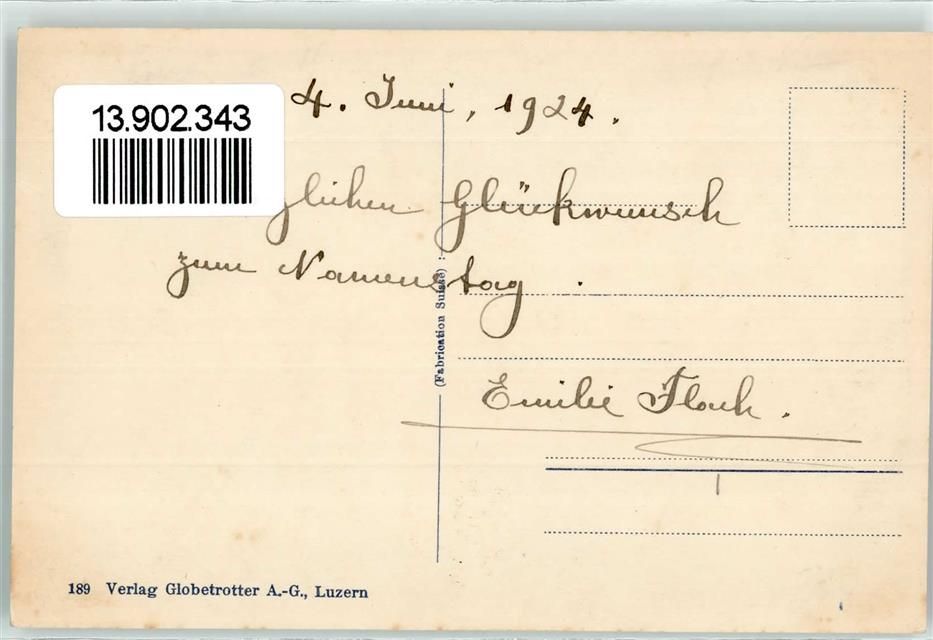 13.902.343
4. Juni, 1924.
glichen Glückwunsch
zum Namenstag.
(Fabrication Suisse)
Emilie
189 Verlag Globetrotter A.-G., Luzern